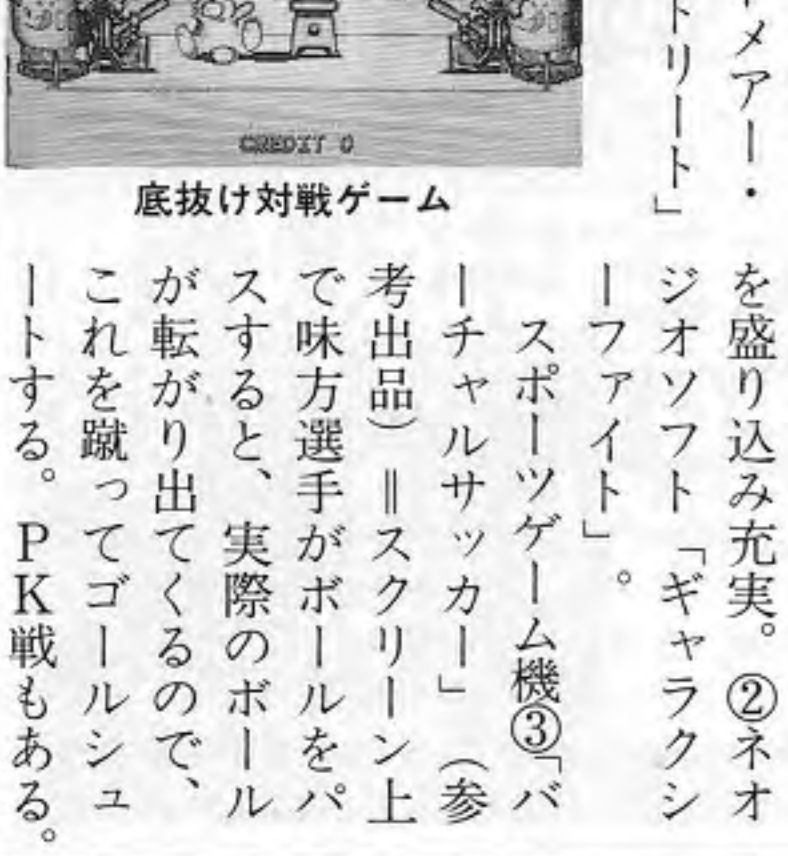 メアー・
トリート」
CREDIT 0
底抜け対戦ゲーム
を盛り込み充実。②ネオ
ジオソフト「ギャラクシ
ーファイト」。
スポーツゲーム機③「バ
ーチャルサッカー」（参
考出品）＝スクリーン上
で味方選手がボールをパ
スすると、実際のボール
が転がり出てくるので、
これを蹴ってゴールシュ
ートする。PK戦もある。